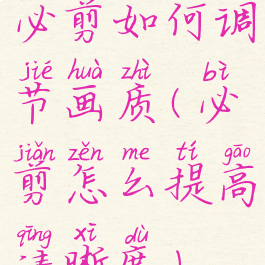 必剪如何调
jié huà zhì bì
节画质(必
jiǎn zěn me tí gāo
剪怎么提高
qīng xī dù
清晰度)